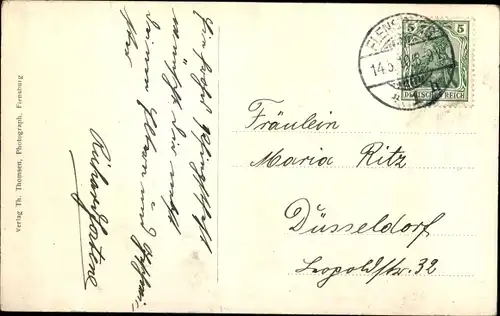 Ein frohes Pfingstfest
wünscht Dir nebst
Deinen Eltern und
Ihr
Richard
Verlag Th. Thomsen, Photograph, Flensburg
FLENSBURG
14.5.
5 5
DEUTSCHES REICH
Fräulein
Maria Ritz
Düsseldorf
Leopoldstr. 32